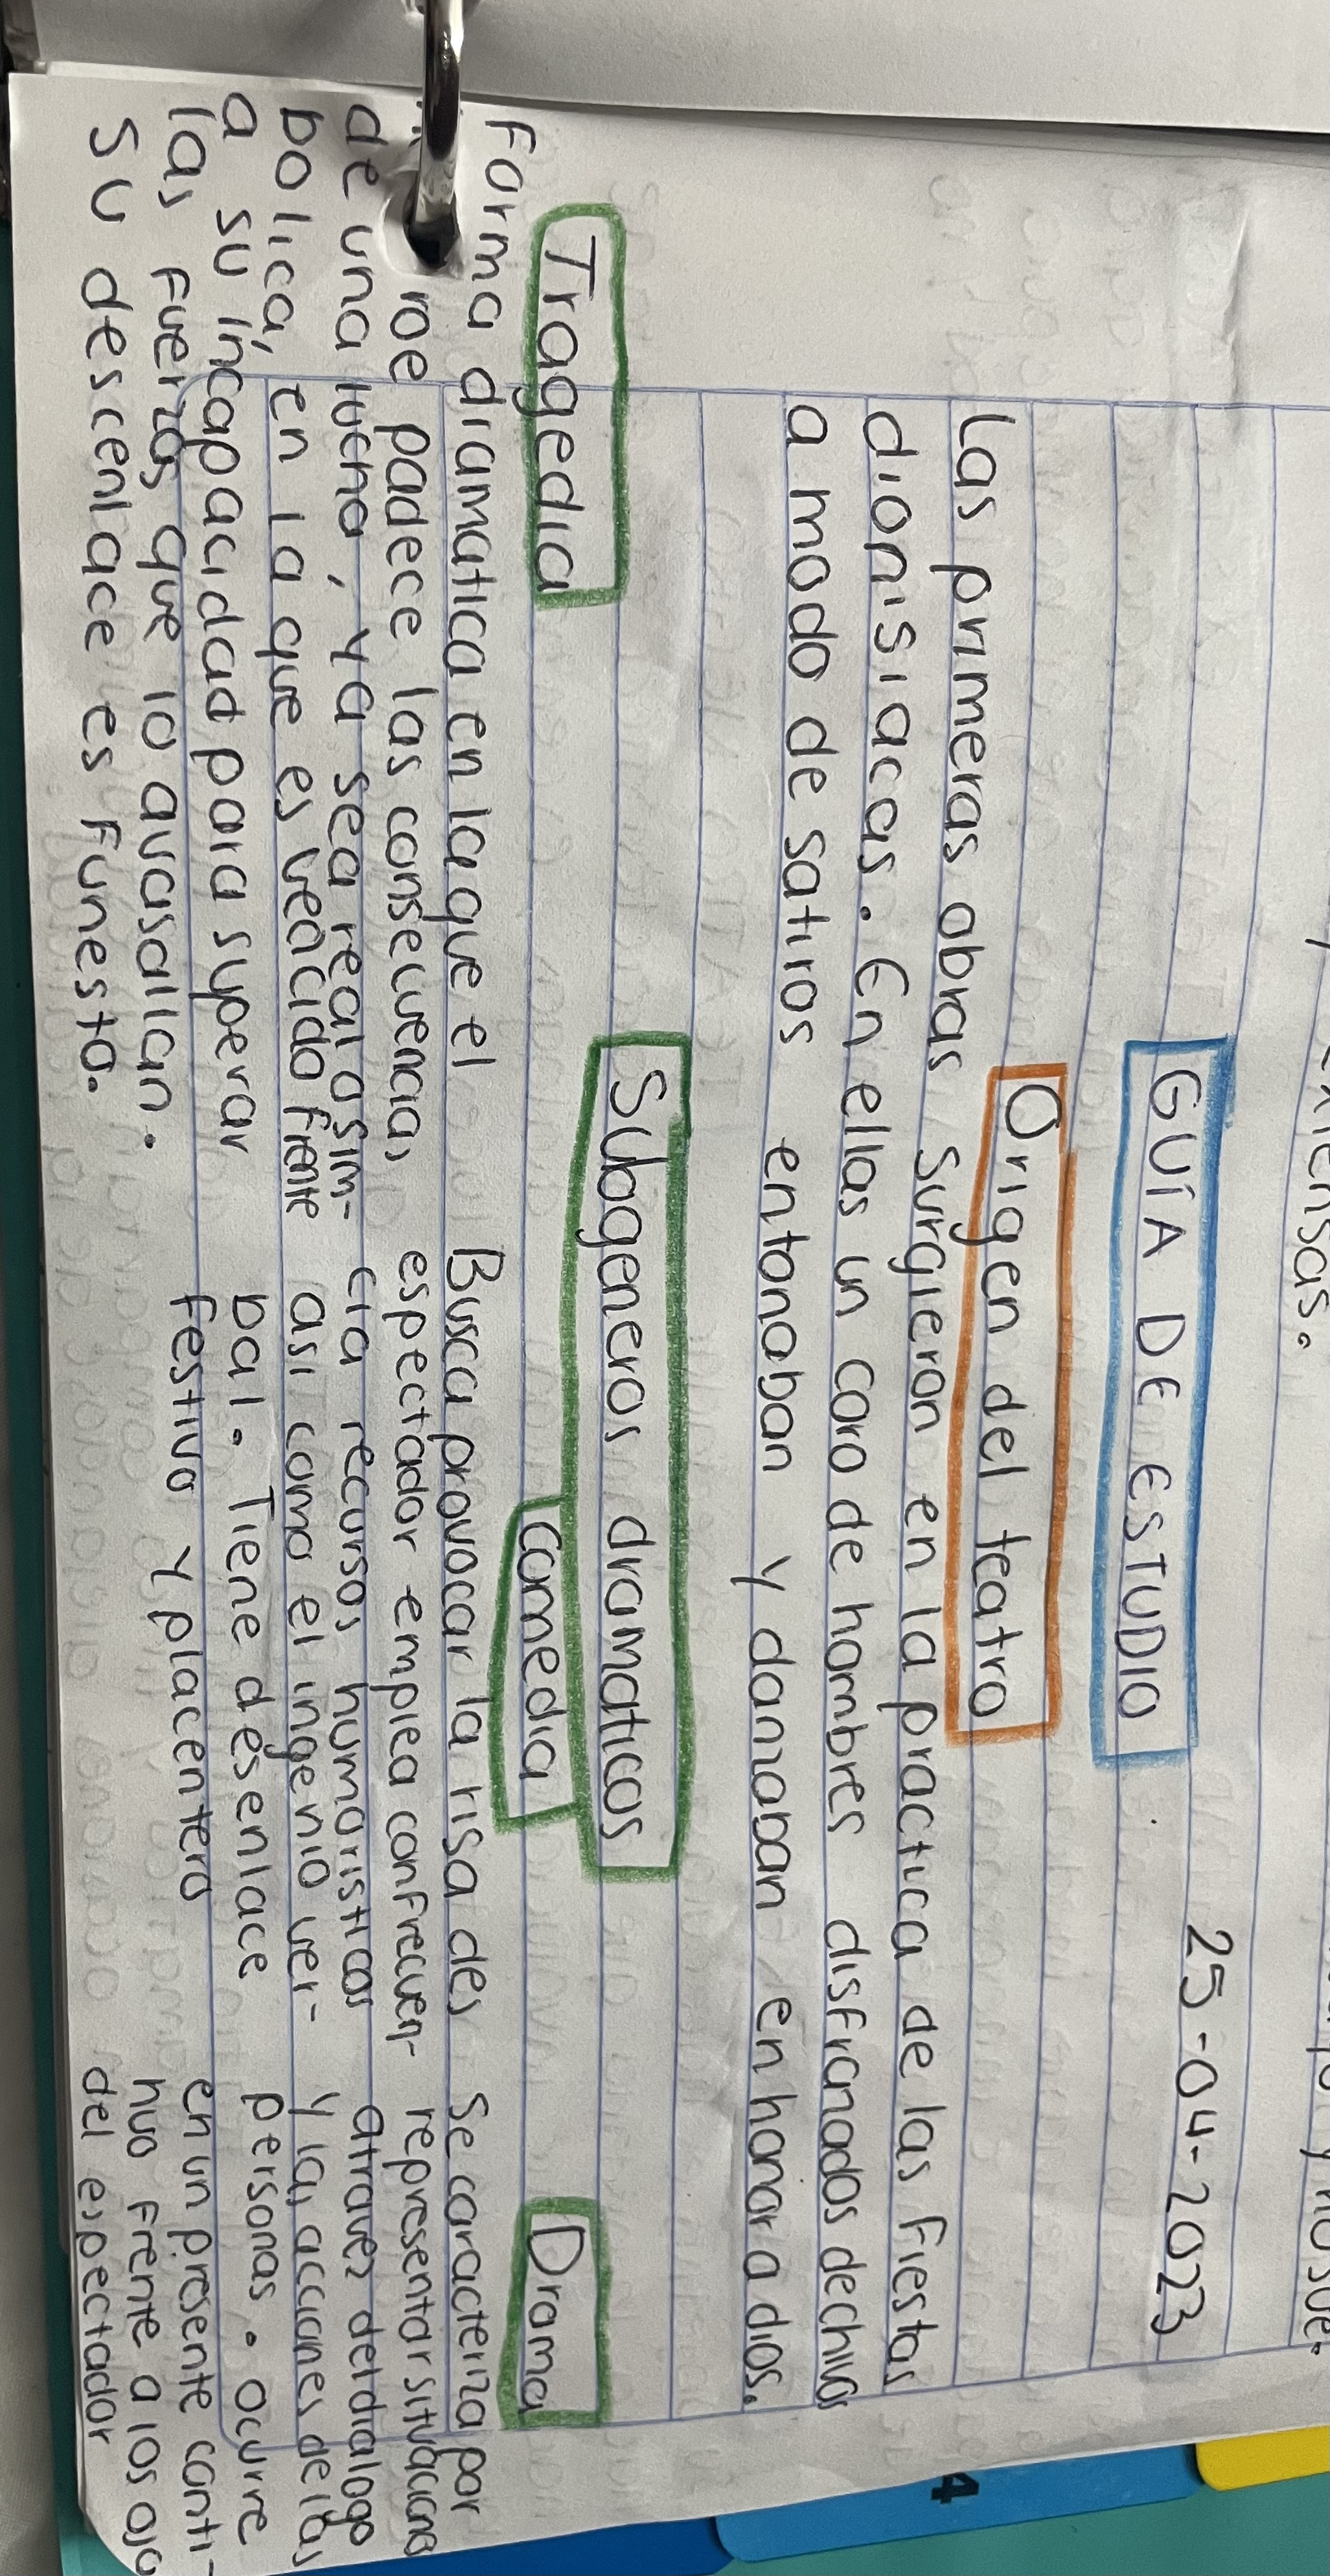 extensas.
25-04-2023
GUÍA DE ESTUDIO
Origen del teatro
Las primeras obras surgieron en la practica de las fiestas
dionisiacas. En ellas un coro de hombres disfranados de chivos
a modo de satiros entonaban y danzaban en honor a dios.
Subgeneros dramaticos
Tragedia
Forma dramatica en la que el
roe padece las consecuencias
de una lucha, ya sea real o sim-
bolica, en la que es veacido frente
a su incapacidad para superar
las fuerzas que lo avasallan.
Su descenlace es funesto.
comedia
Busca provocar la risa des
espectador emplea con frecuen-
cia recursos humoristicos
asi como el ingenio ver-
bal. Tiene desenlace
festivo y placentero
Drama
Se caracteriza por
representar situaciono
atraves del dialogo
y las acciones de las
personas. Ocurre
en un presente conti-
nuo frente a los ojo
del espectador
4